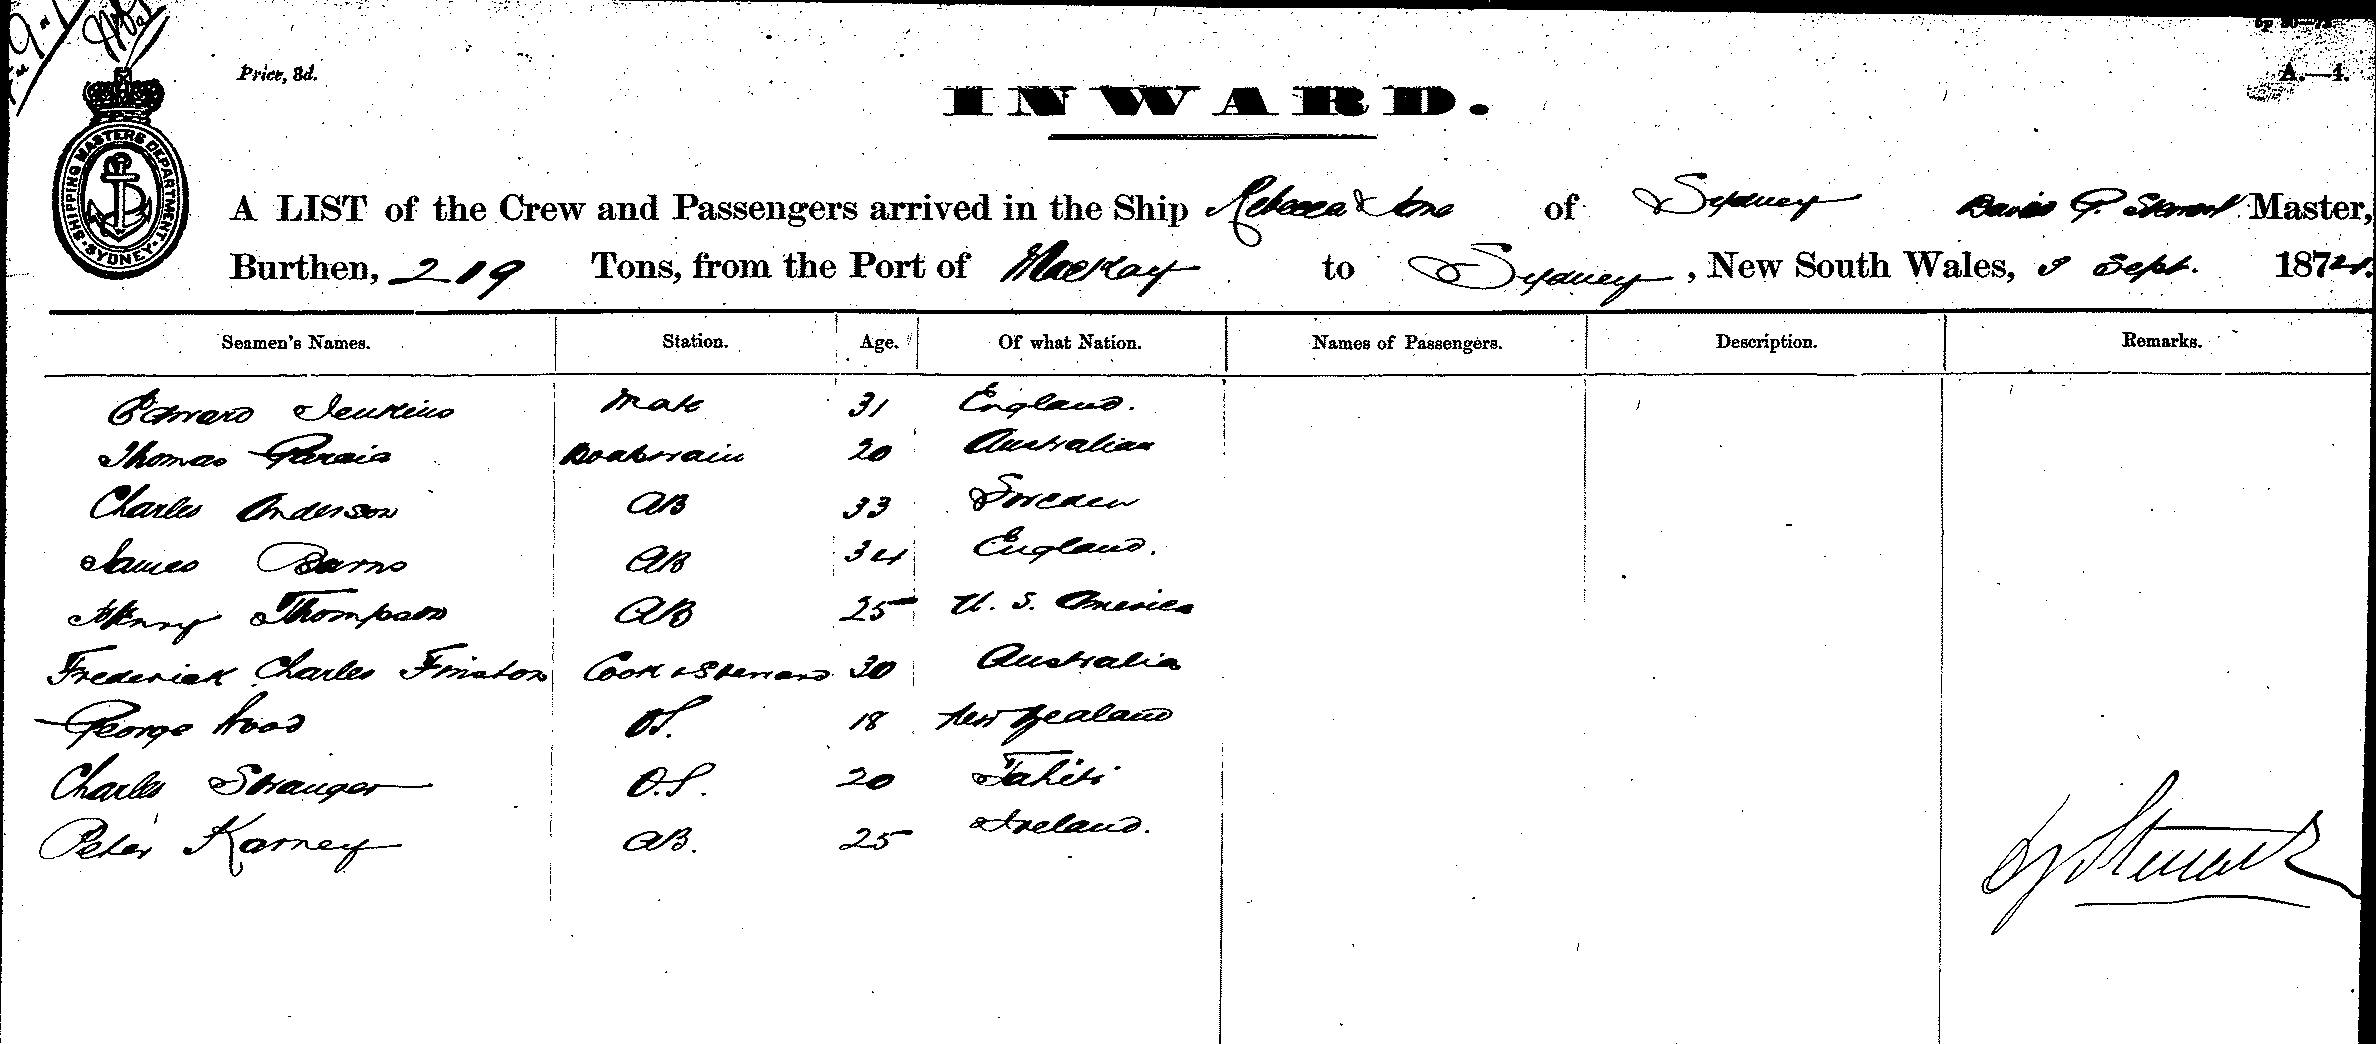 Price, 3d.
A.—1.
INWARD.
SHIPPING MASTERS DEPARTMENT. SYDNEY.
A LIST of the Crew and Passengers arrived in the Ship Rebecca Jane of Sydney David G. Stewart Master,
Burthen, 219 Tons, from the Port of Mackay to Sydney, New South Wales, 9 Sept. 1874.
Seamen's Names. Station. Age. Of what Nation. Names of Passengers. Description. Remarks.
Edward Jenkins Mate 31 England.
Thomas Boatswain 20 Australian
Charles Anderson AB 33 Sweden
James Barns AB 34 England.
Henry Thompson AB 25 U. S. America
Frederick Charles Friston Cook & Steward 30 Australia
George Wood OS. 18 New Zealand
Charles Stranger O.S. 20 Tahiti
Peter Karney AB. 25 Ireland.
Stewart